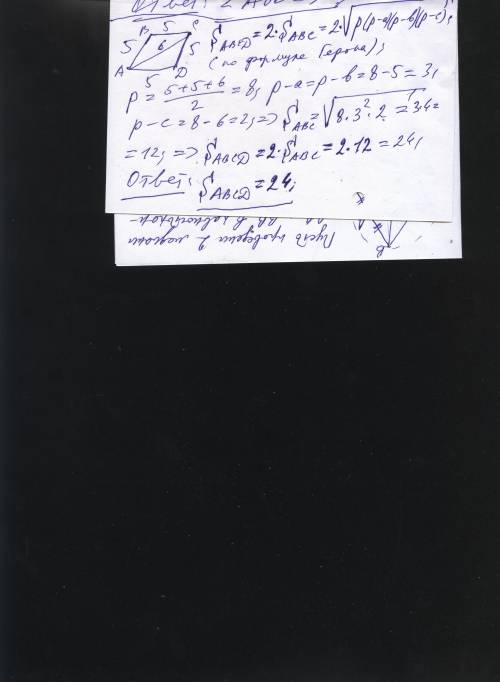 Ответ: ∠ABC =
B 5 C
5 6 5
A 5 D
S_ABCD = 2·S_ABC = 2·√p(p-a)(p-b)(p-c);
(по формуле Герона);
p = (5+5+6)/2 = 8; p-a = p-b = 8-5 = 3;
p-c = 8-6 = 2; => S_ABC = √8·3²·2 = 3·4 =
= 12; => S_ABCD = 2·S_ABC = 2·12 = 24;
Ответ: S_ABCD = 24;
Пусть проведены 2
B